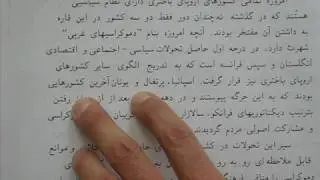 امروزه تمامی کشورهای اروپای باختری دارای نظام سیاسیی
هستند که در گذشته نه‌چندان دور فقط دو سه کشور در این قاره
به داشتن آن مفتخر بودند. آنچه امروزه بنام "دموکراسیهای غربی"
شهرت دارد، در درجه اول حاصل تحولات سیاسی - اجتماعی و اقتصادی
انگلستان و سپس فرانسه است که به تدریج الگوی سایر کشورهای
اروپای باختری نیز قرار گرفت. اسپانیا، پرتغال و یونان آخرین کشورهایی
بودند که به این حرگه پیوستند و در بعد از از رفتن
بترتیب دیکتاتوریهای فرانکو، سالازار
و مشارکت اصولی مردم گردیدند
سیر این تحولات در کشور و موانع
قابل ملاحظه‌ای رو به رو